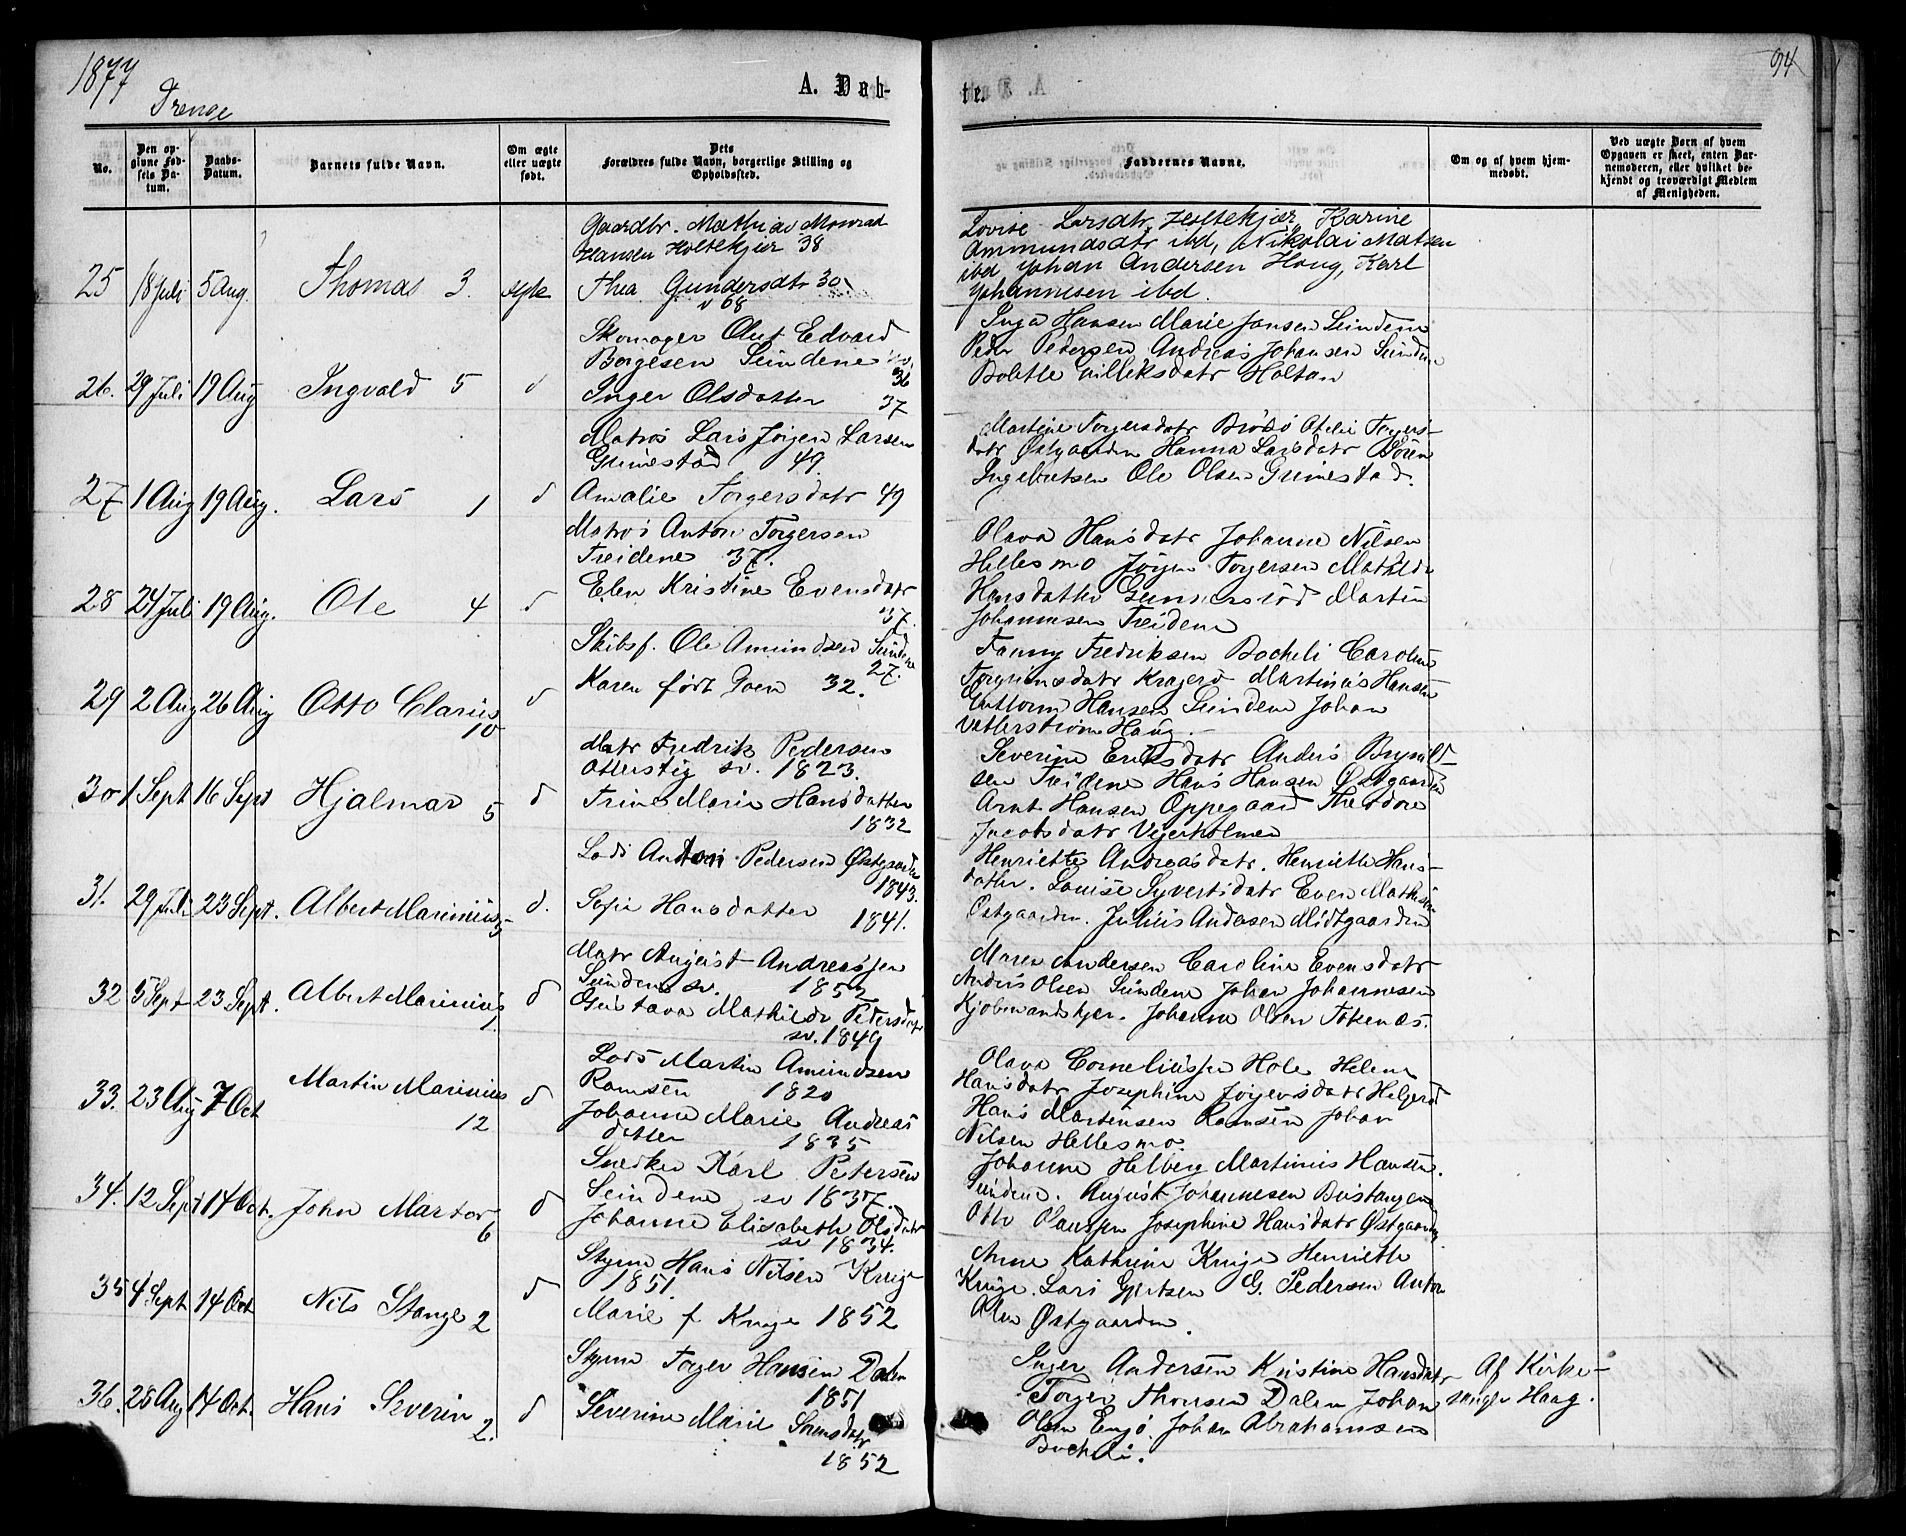 1877
A. Døb-
te.
94
No.
Den op-
givne Fød-
sels Da-
tum.
Daabs-
Datum.
Barnets fulde Navn.
Om ægte
eller uægte
født.
Dets
Forældres fulde Navn, borgerlige Stilling og
Opholdssted.
Faddernes Navne.
Om og af hvem hjem-
medøbt.
Ved uægte Børn af hvem
Opgaven er skeet, enten Bar-
nemoderen, eller hvilket be-
kjendt og troværdigt Medlem
af Menigheden.
25 18 Juli 5 Aug. Thomas 3. ægte
Gaardbr. Mathias Monrad
Hansen Holtekjær 38
Thea Gundersdatr 30
v 68
Lovise Larsdtr, Holtekjær, Karine
Ammundsdtr ibd, Nikolai Matsen
ibd Johan Andersen Houg, Karl
Johannesen ibd.
26. 29 Juli 19 Aug Ingvald 5 d
Skomager Olut Edvard
Borgesen Sundene
36
Inger Olsdatter 37
Inga Hansen Marie Jansen Sundene
Peder Pedersen Andreas Johansen Sunden
Bolette Villeksdatr Holtan
27 1 Aug 19 Aug. Lars 1 d
Matros Lars Jørgen Larsen
Grimestad 49.
Amalie Torgersdatr 49
Martine Torgersdatr Brødsø Ofelie Torgers-
datr Østgaarden Hanna Larsdatr Søren
Ingebretsen Ole Olsen Grimestad.
28 24 Juli 19 Aug. Ole 4 d
Matros Anton Torgersen
Treidene 37.
Elen Kristine Evensdatr
37.
Olava Hansdatr Johanne Nilsen
Hellesmo Jørgen Torgersen Mathilde
Hansdatter Gunnersrød Martin
Johannesen Treidene
29 2 Aug 26 Aug Otto Clarius 10 d
Skibsf. Ole Amundsen Sundene
27.
Karen født Goen 32.
Fanny Fredriksen Bocheli Caroline
Torgrimsdatr Kragerø Martinus Hansen
Guttorm Hansen Sundene Johan
Vetterstrøm Haug.
30 1 Sept 16 Sept Hjalmar 5 d
Matr Fredrik Pedersen
Otterstig sv. 1823.
Trine Marie Hansdatter
1832
Severine Eriksdatr Anders Brynild-
sen Treidene Hans Hansen Østgaarden
Arnt Hansen Oppegaard Theodore
Jacobsdatr Vejerholmen
31. 29 Juli 23 Sept. Albert Marinius 5 d.
Lods Anton Pedersen Østgaarden
1843.
Sofie Hansdatter 1841.
Henriette Andreasdatr. Henriette Hans-
datter. Louise Syvertsdatr Even Mathisen
Østgaarden. Julius Andersen Midtgaarden
32 5 Sept 23 Sept. Albert Marinius 1 d
Matr August Andreassen
Sundene sv. 1852
Gustava Mathilde Pedersdatr
sv. 1849
Maren Andersen Caroline Evensdatr
Anders Olsen Sundene Johan Johannesen
Kjøbmandskjær. Johanne Olsen Tokenæs.
33. 23 Aug 7 Oct Martin Marinius 12 d
Lods Martin Amundsen
Ramsen 1820
Johanne Marie Andreas
datter 1835
Olava Corneliussen Hole Helene
Hansdatr Josephine Jørgensdatr Helgerød
Hans Martinsen Ramsen Johan
Nilsen Hellesmo
34. 12 Sept 14 Oct. John Martor 6 d
Snedker Karl Petersen
Sundene sv 1837.
Johanne Elisabeth Olsdatr
sv 1834.
Johanne Helberg Martinius Hansen.
Sundene. August Johannesen Bustangen
Otto Olaussen Josephine Hansdatr Østgaarden
35 4 Sept 14 Oct Nils Stange 2 d
Styrm Hans Nilsen Kruge
1851.
Marie f. Kruge 1852
Anne Kathrine Kruge Henriette
Kruge. Lars Gjertsen G. Pedersen Anton
Olsen Østgaarden.
36. 28 Aug 14 Oct. Hans Severin 2. d
Styrm Torger Hansen Dalen
1851
Severine Marie Sørensdatr
1852
Inger Andersen Kristine Hansdatr
Torger Thorsen Dalen Johan
Olsen Engø. Johan Abrahamsen
Bocheli.
Af Kirke-
sanger Haag.